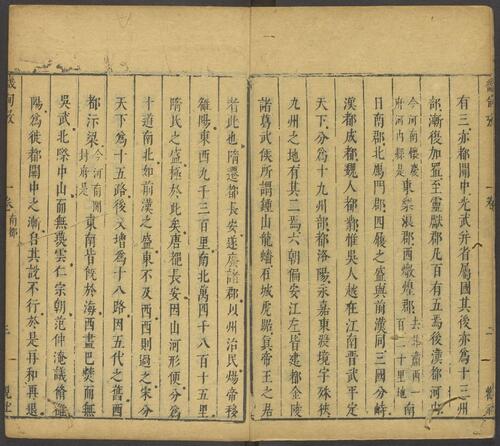 有三亦都關中光武并省屬國其後亦為十三州
部漸後加置至靈獻郡凡百有五焉後漢都河
府河内縣是東樂浪郡西燉煌郡百二十里地南
日南郡北鴈門郡四履之盛與前漢同三國分峙
漢都成都魏人都鄴惟吳人越在江南晉武平定
天下分為十九州部都洛陽永嘉東渡境宇殊狹
九州之地有其二焉六朝偏安江左皆建都金陵
諸葛武侯所謂鍾山龍蟠石城虎踞真帝王之居
者此也隋遷都長安遂廢諸郡以州治民煬帝移
雒陽東西九千三百里南北萬四千八百十五里
隋氏之盛極於此矣唐都長安因山河形便分為
十道南北如前漢之盛東不及西西則過之宋分
天下為十五路後又增為十八路因五代之舊西
都汴梁今河南開封府是東南皆際於海西盡巴僰而無
武北際中山而無燕雲仁宗朝范仲淹議脩雒
陽為徙都關中之漸其說不行於是再和再退
卷 南都 三